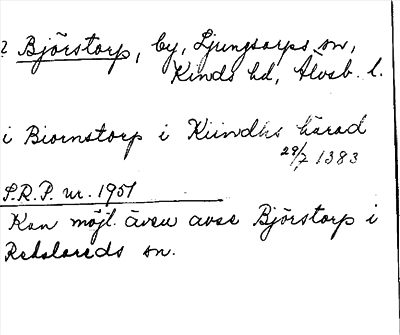 ? Björstorp, by, Ljungsarps sn,
Kinds hd, Älvsb. l.
i Biornstorp i Kiindhs härad
29/7 1383
S.R.P. nr. 1951
Kan möjl. även avse Björstorp i
Redslareds sn.